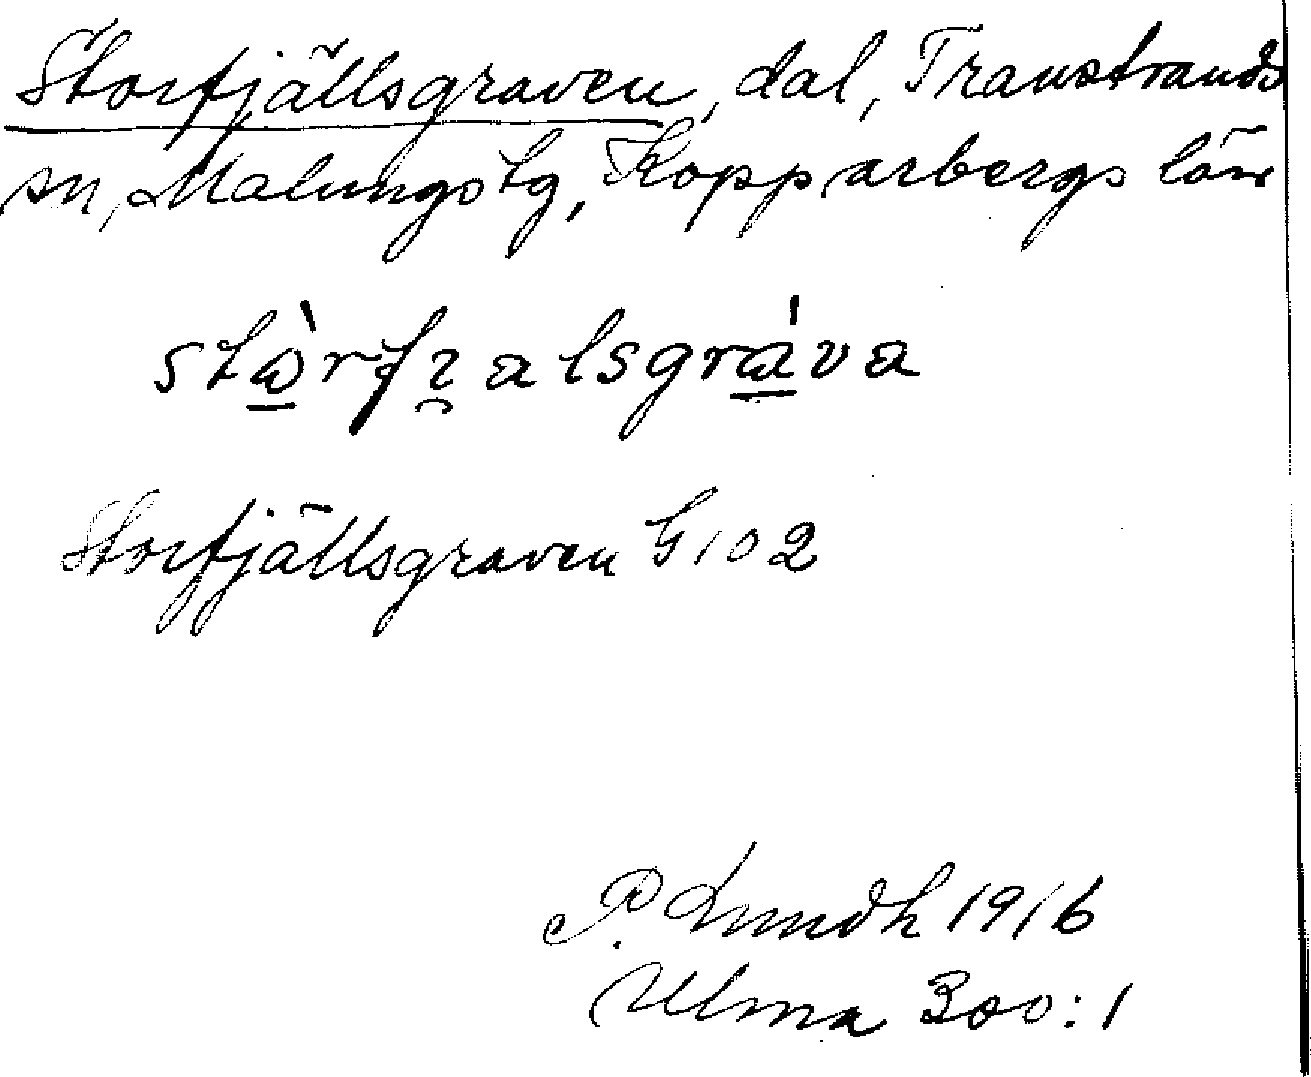 Storfjällsgraven, dal, Transtrands
sn, Malungs tg, Kopparbergs län
stὼ̠rfɿ̯alsgrά̠va
Storfjällsgraven G 102
P. Lundh 1916
Ulma 300:1